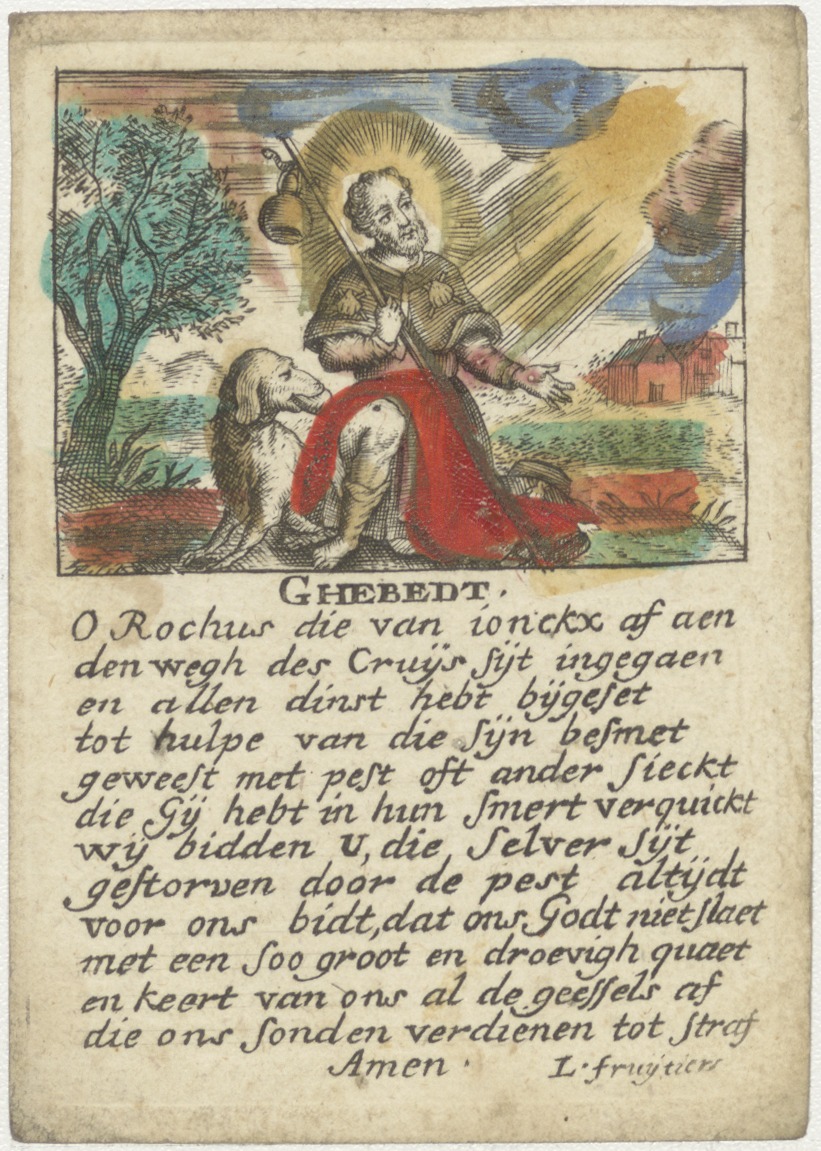 GHEBEDT.
O Rochus die van ionckx af aen
den wegh des Cruÿs ſijt ingegaen
en allen dinst hebt bÿgeſet
tot hulpe van die ſÿn beſmet
geweeſt met peſt oft ander ſieckt
die Gÿ hebt in hun ſmert verquickt
wÿ bidden U, die ſelver ſÿt
geſtorven door de pest altÿdt
voor ons bidt, dat ons Godt niet ſlaet
met een ſoo groot en droevigh quaet
en keert van ons al de geeſſels af
die ons ſonden verdienen tot ſtraf
Amen.
L. fruÿtiers